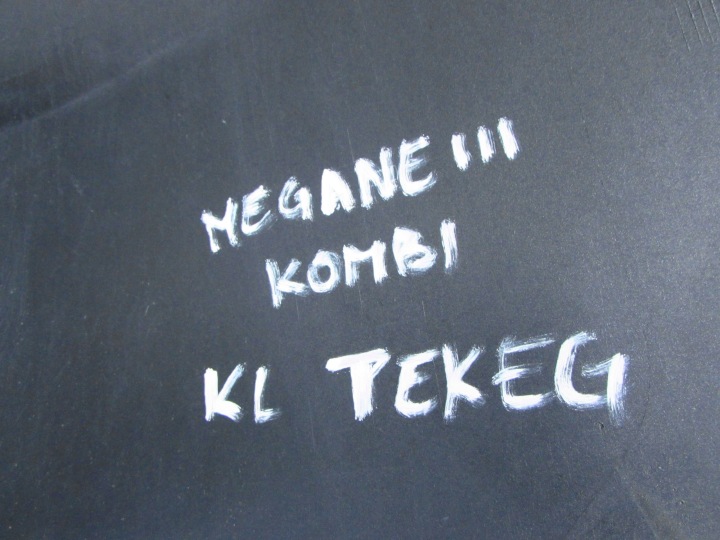 MEGANE III
KOMBI
KL TEKEG